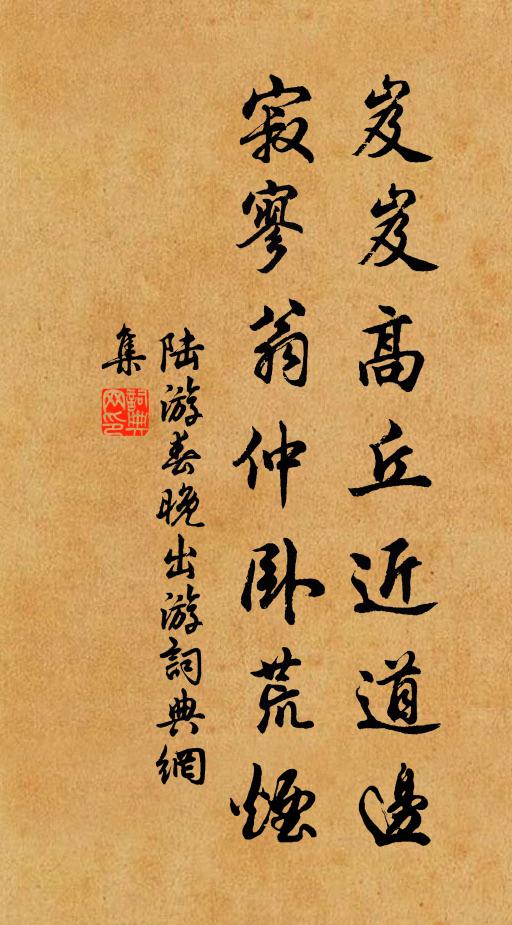 岌岌高丘近道邊
寂寥翁仲臥荒煙
陆游春晚出游詞典網
集
詞典网印